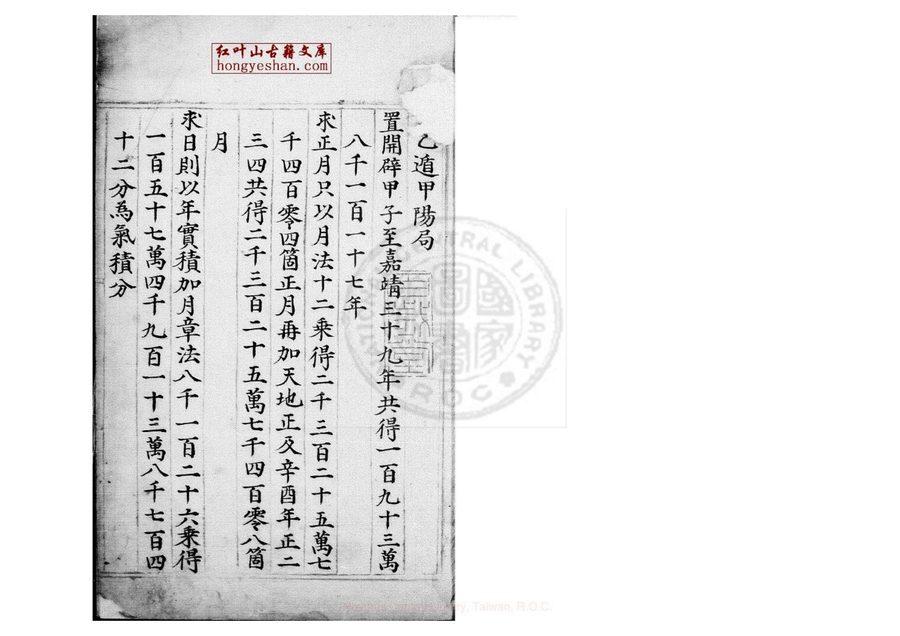 红叶山古籍文库
hongyeshan.com
乙遁甲陽局
置開辟甲子至嘉靖三十九年共得一百九十三萬
八千一百一十七年
求正月只以月法十二乘得二千三百二十五萬七
千四百零四箇正月再加天地正及辛酉年正二
三四共得二千三百二十五萬七千四百零八箇
月
求日則以年實積加月章法八千一百二十六乘得
一百五十七萬四千九百一十三萬八千七百四
十二分為氣積分
CENTRAL LIBRARY
R.O.C.
國家圖書
Library, Taiwan, R.O.C.